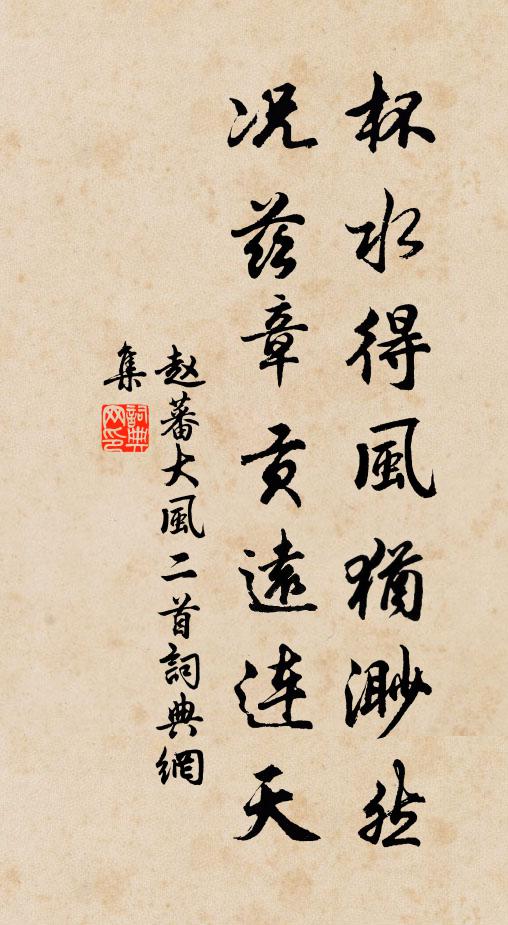 杯水得風猶渺然
况兹章贡遠連天
赵蕃大風二首詞典網
集
詞典
网印